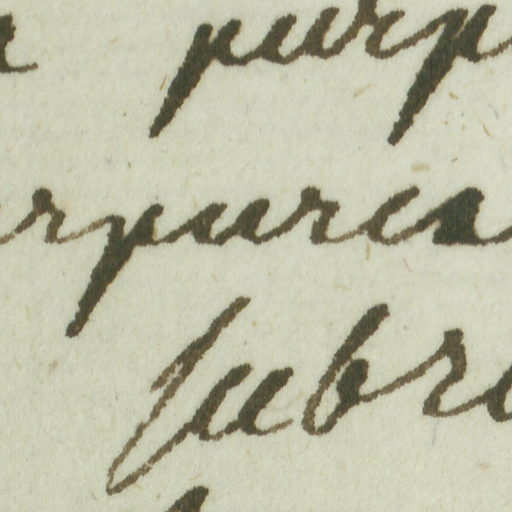 a purp
rpurea
subru